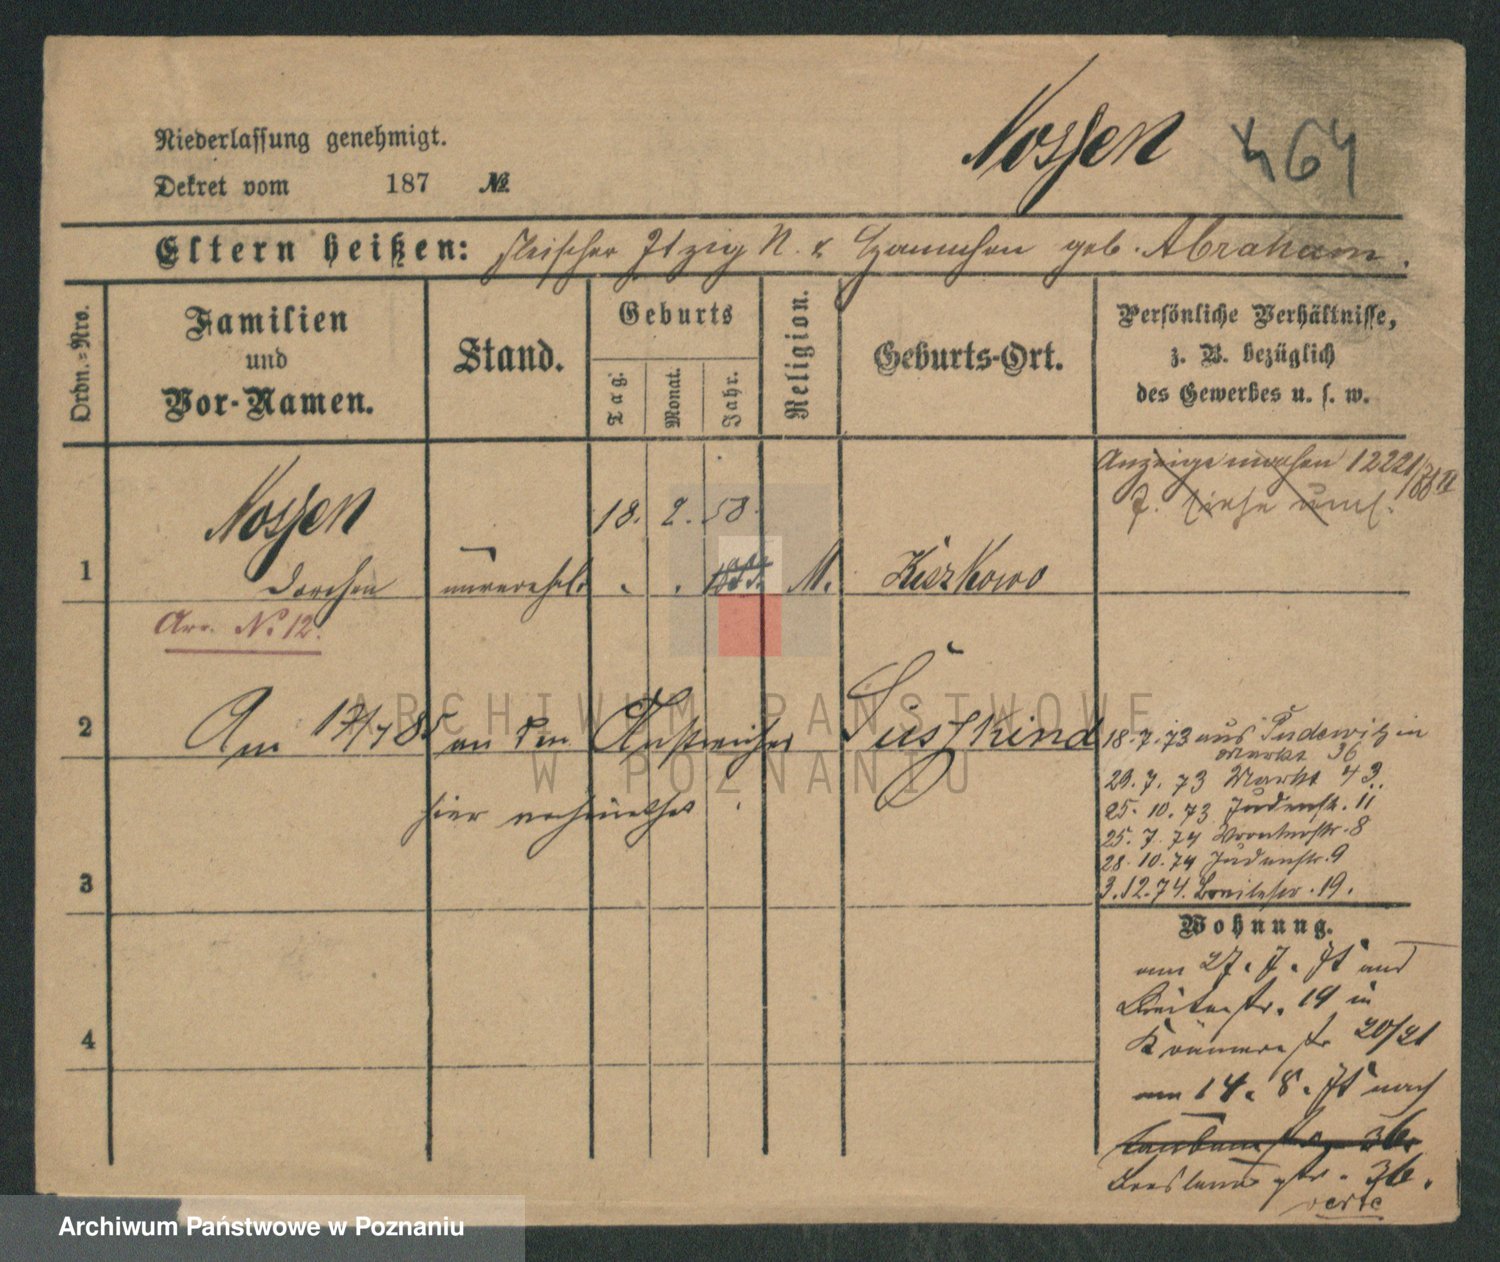 Nossen 464
Niederlassung genehmigt.
Dekret vom 187 №
Eltern heißen: Fleischer Itzig N. & Hannchen geb. Abraham.
Ordn.-Nro.
Familien
und
Vor-Namen.
Stand.
Geburts
Tag.
Monat.
Jahr.
Religion.
Geburts-Ort.
Persönliche Verhältnisse,
z. B. bezüglich
des Gewerbes u. s. w.
Anzeige machen 12221/
J. siehe
Nossen 18. 2. 58.
1 Dorchen unverehel. M. Kiszkowo
Arr. No 12.
2 Am 17/7 85 an den Anstreicher Süsskind
hier verheirathet.
18.7.73 aus Pudewitz in
Markt 36
29.7.73 Markt 43.
25.10.73 Judenstr. 11
25.7.74 Wronkerstr. 8
28.10.74 Judenstr. 9
3.12.74. Breitestr. 19.
3
Wohnung.
am 27. 7. 75 aus
Breitestr. 19 in
Krämerstr 20/21
4
am 14. 8. 75 nach
36
Breslauerstr. 36.
verte
ARCHIWUM PAŃSTWOWE
W POZNANIU
Archiwum Państwowe w Poznaniu